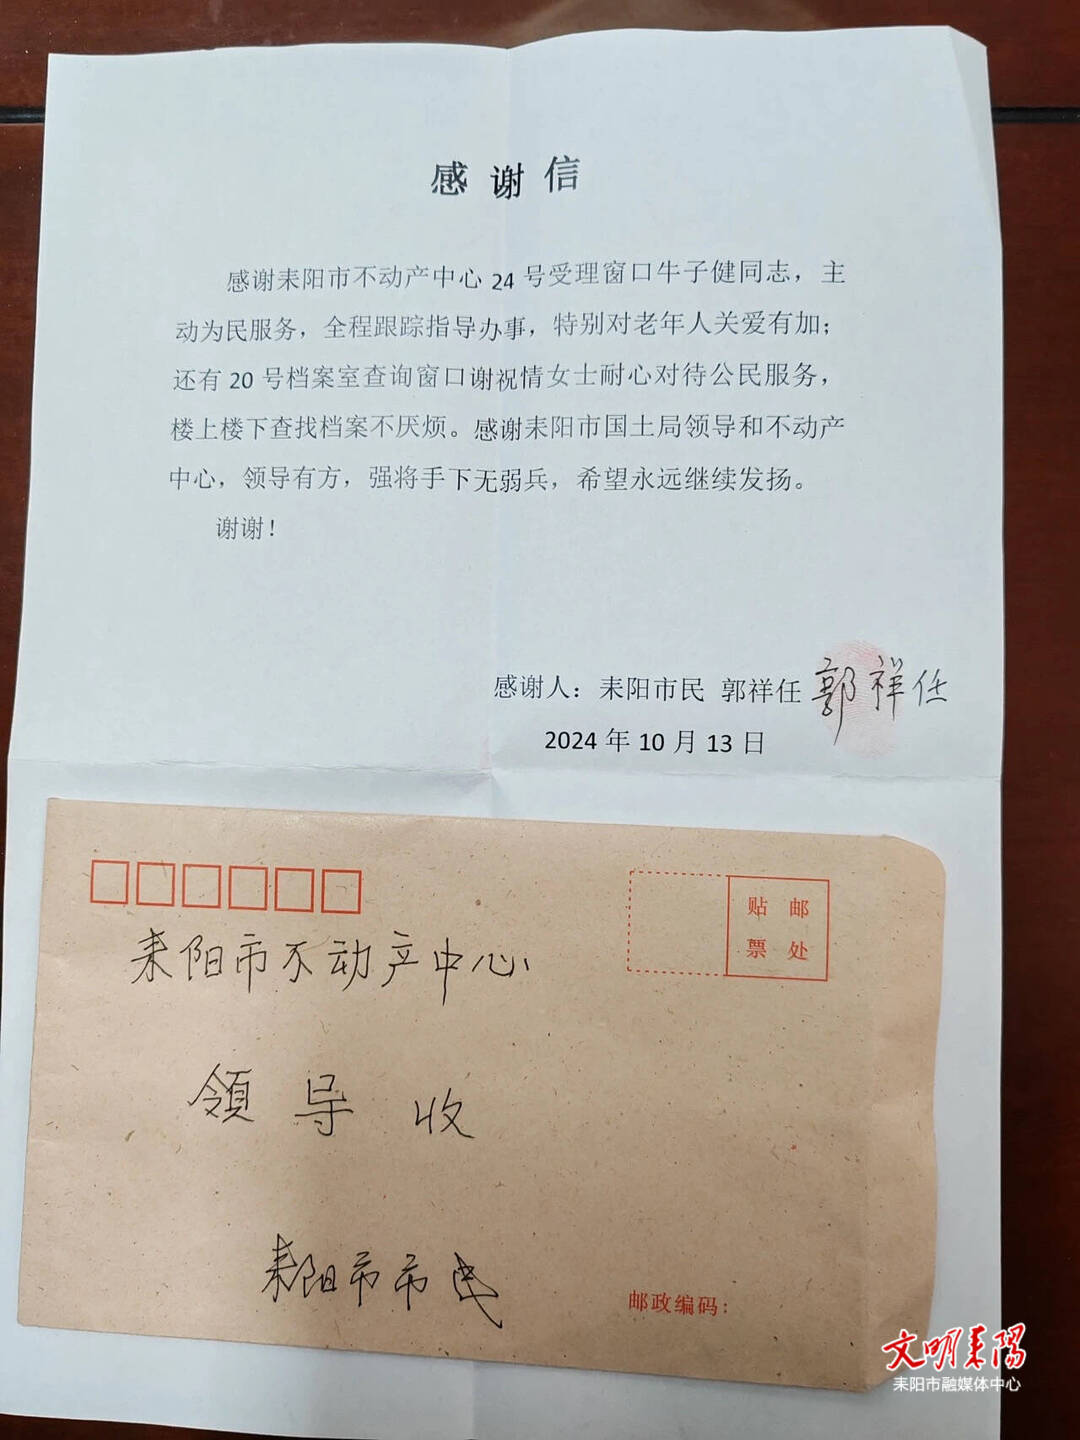 感谢信
感谢耒阳市不动产中心 24 号受理窗口牛子健同志，主
动为民服务，全程跟踪指导办事，特别对老年人关爱有加；
还有 20 号档案室查询窗口谢祝情女士耐心对待公民服务，
楼上楼下查找档案不厌烦。感谢耒阳市国土局领导和不动产
中心，领导有方，强将手下无弱兵，希望永远继续发扬。
谢谢！
感谢人：耒阳市民 郭祥任 郭祥任
2024 年 10 月 13 日
贴 邮
票 处
耒阳市不动产中心
領导收
耒阳市市民
邮政编码：
文明耒陽
耒阳市融媒体中心